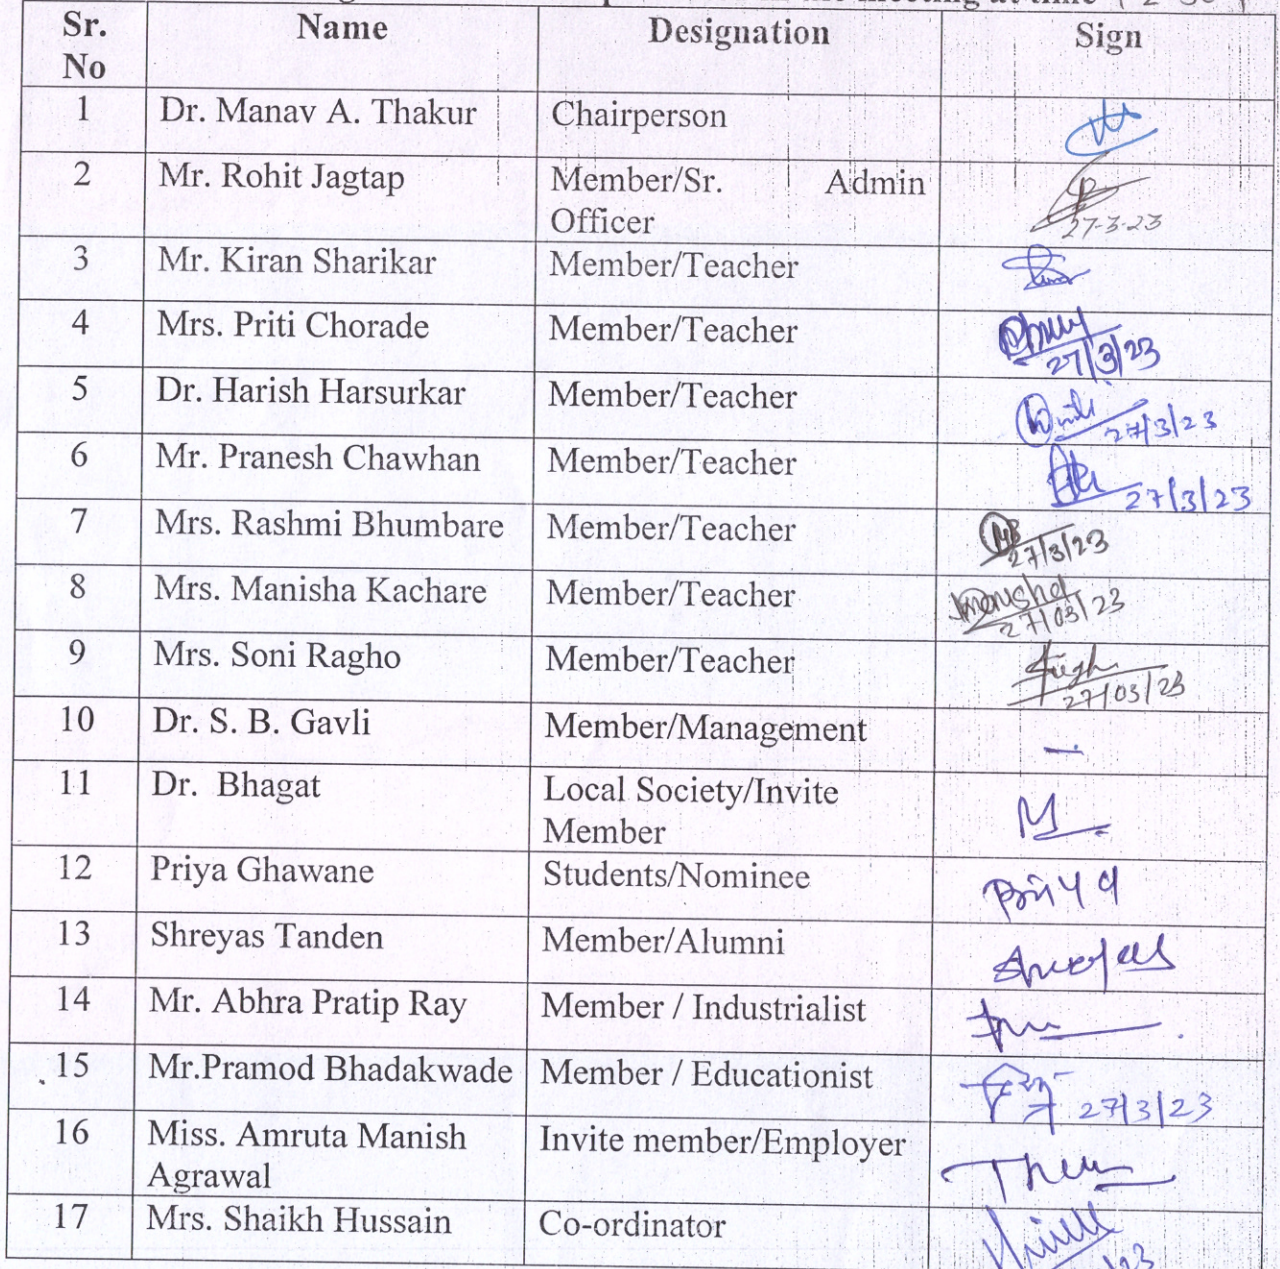 the meeting at time
Sr. No Name Designation Sign
1 Dr. Manav A. Thakur Chairperson
2 Mr. Rohit Jagtap Member/Sr. Admin
Officer 27-3-23
3 Mr. Kiran Sharikar Member/Teacher
4 Mrs. Priti Chorade Member/Teacher 27/3/23
5 Dr. Harish Harsurkar Member/Teacher 27/3/23
6 Mr. Pranesh Chawhan Member/Teacher 27/3/23
7 Mrs. Rashmi Bhumbare Member/Teacher 27/3/23
8 Mrs. Manisha Kachare Member/Teacher Manisha 27/03/23
9 Mrs. Soni Ragho Member/Teacher 27/03/23
10 Dr. S. B. Gavli Member/Management —
11 Dr. Bhagat Local Society/Invite
Member
12 Priya Ghawane Students/Nominee Priya
13 Shreyas Tanden Member/Alumni Shreyas
14 Mr. Abhra Pratip Ray Member / Industrialist
15 Mr.Pramod Bhadakwade Member / Educationist 27/3/23
16 Miss. Amruta Manish Invite member/Employer
Agrawal
17 Mrs. Shaikh Hussain Co-ordinator